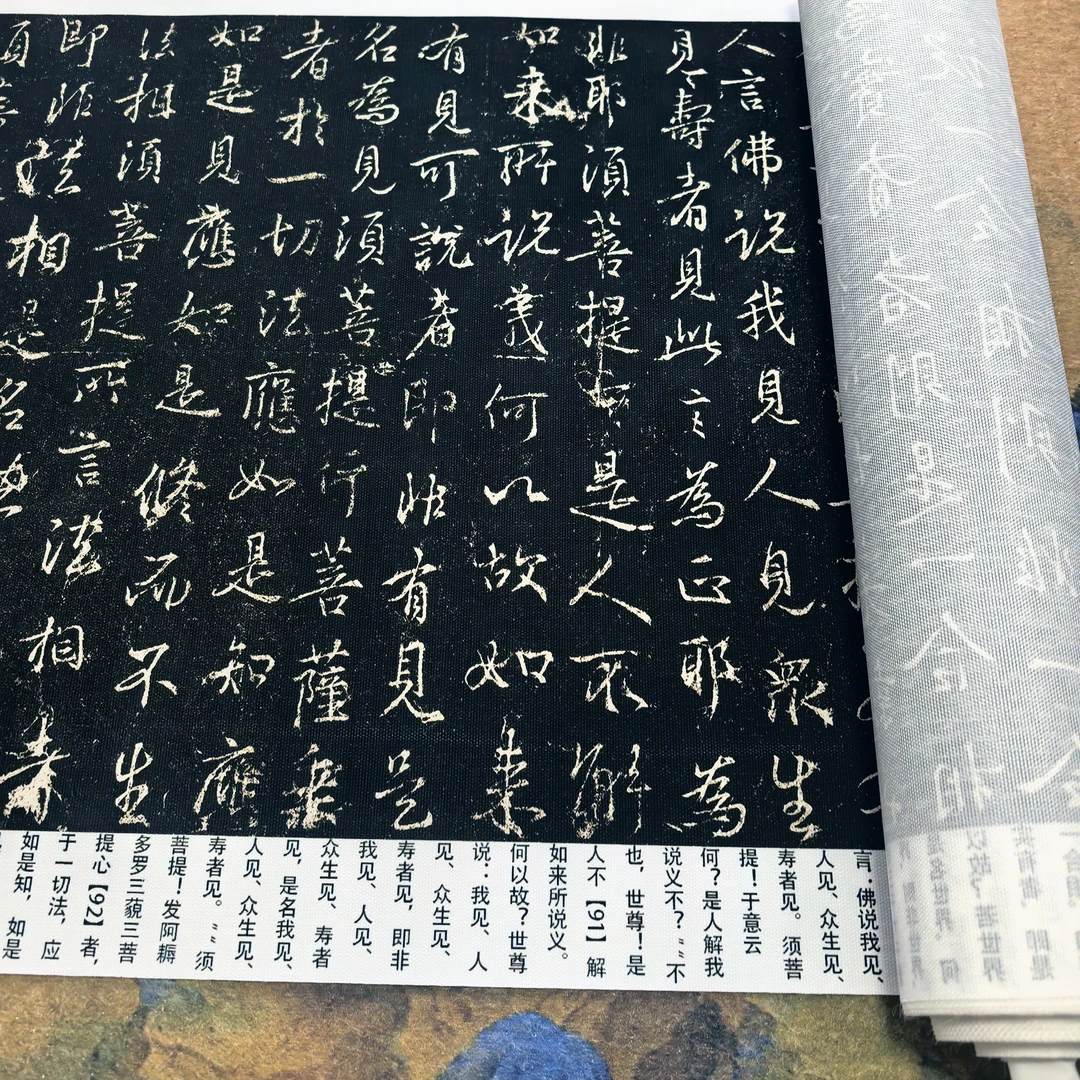 人言佛说我見人見眾生
見〻壽者見此言為正耶為
非耶須菩提是人不解
如来所说義何以故如来
有見可說者即非有見是
名為見須菩提行菩薩乘
者於一切法應如是知應
如是見應如是修而不生
法相須菩提所言法相者
即非法相是名
須菩
言：佛说我见、
人见、众生见、
寿者见。 须菩
提！于意云
何？是人解我
说义不？""不
也，世尊！是
人不【91】解
如来所说义。
何以故？世尊
说：我见、人
见、众生见、
寿者见，即非
我见、人见、
众生见、寿者
见，是名我见、
人见、众生见、
寿者见。""须
菩提！发阿耨
多罗三藐三菩
提心【92】者，
于一切法，应
如是知，如是